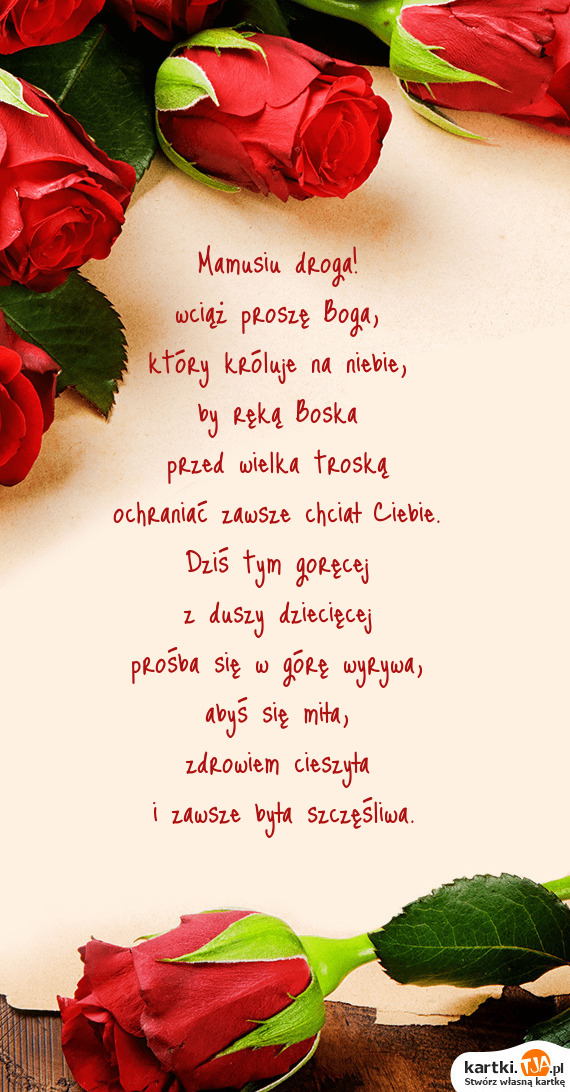 Mamusiu droga!
wciąż proszę Boga,
który króluje na niebie,
by ręką Boska
przed wielka troską
ochraniać zawsze chciał Ciebie.
Dziś tym goręcej
z duszy dziecięcej
prośba się w górę wyrywa,
abyś się miła,
zdrowiem cieszyła
i zawsze była szczęśliwa.
kartki.TJA.pl
Stwórz własną kartkę